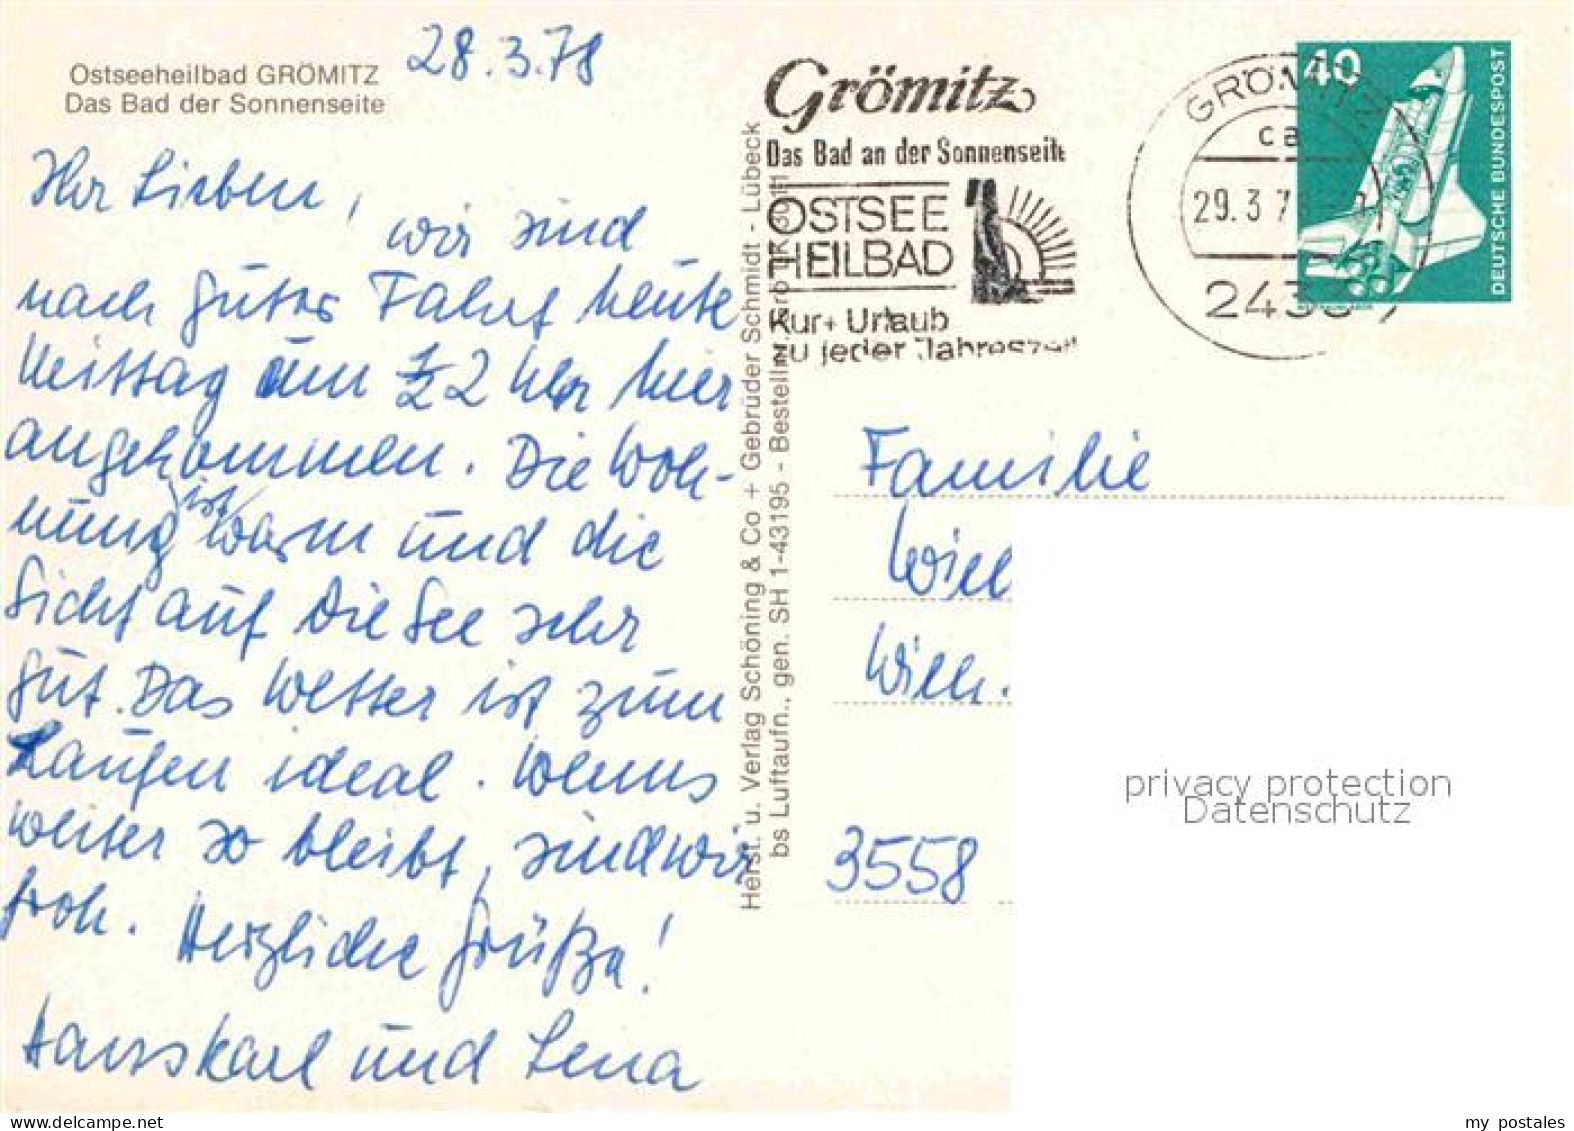 Ostseeheilbad GRÖMITZ
Das Bad der Sonnenseite
28.3.78
Ihr Lieben,
wir sind
nach guter Fahrt heute
Mittag um ½ 2 Uhr hier
angekommen. Die Woh-
nung ist warm und die
Sicht auf die See sehr
gut. Das Wetter ist zum
Laufen ideal. Wenns
weiter so bleibt, sind wir
froh.
Herzliche Grüße!
Hanskarl und Lena
Herst. u. Verlag Schöning & Co + Gebrüder Schmidt - Lübeck
bs Luftaufn., gen. SH 1-43195 - Bestell
Grömitz
Das Bad an der Sonnenseite
OSTSEE
HEILBAD
Kur + Urlaub
zu jeder Jahreszeit
GRÖMITZ
ca
29.3.7
243
40
DEUTSCHE BUNDESPOST
Familie
Will
Wilh.
3558
privacy protection
Datenschutz
www.delcampe.net
my_postales